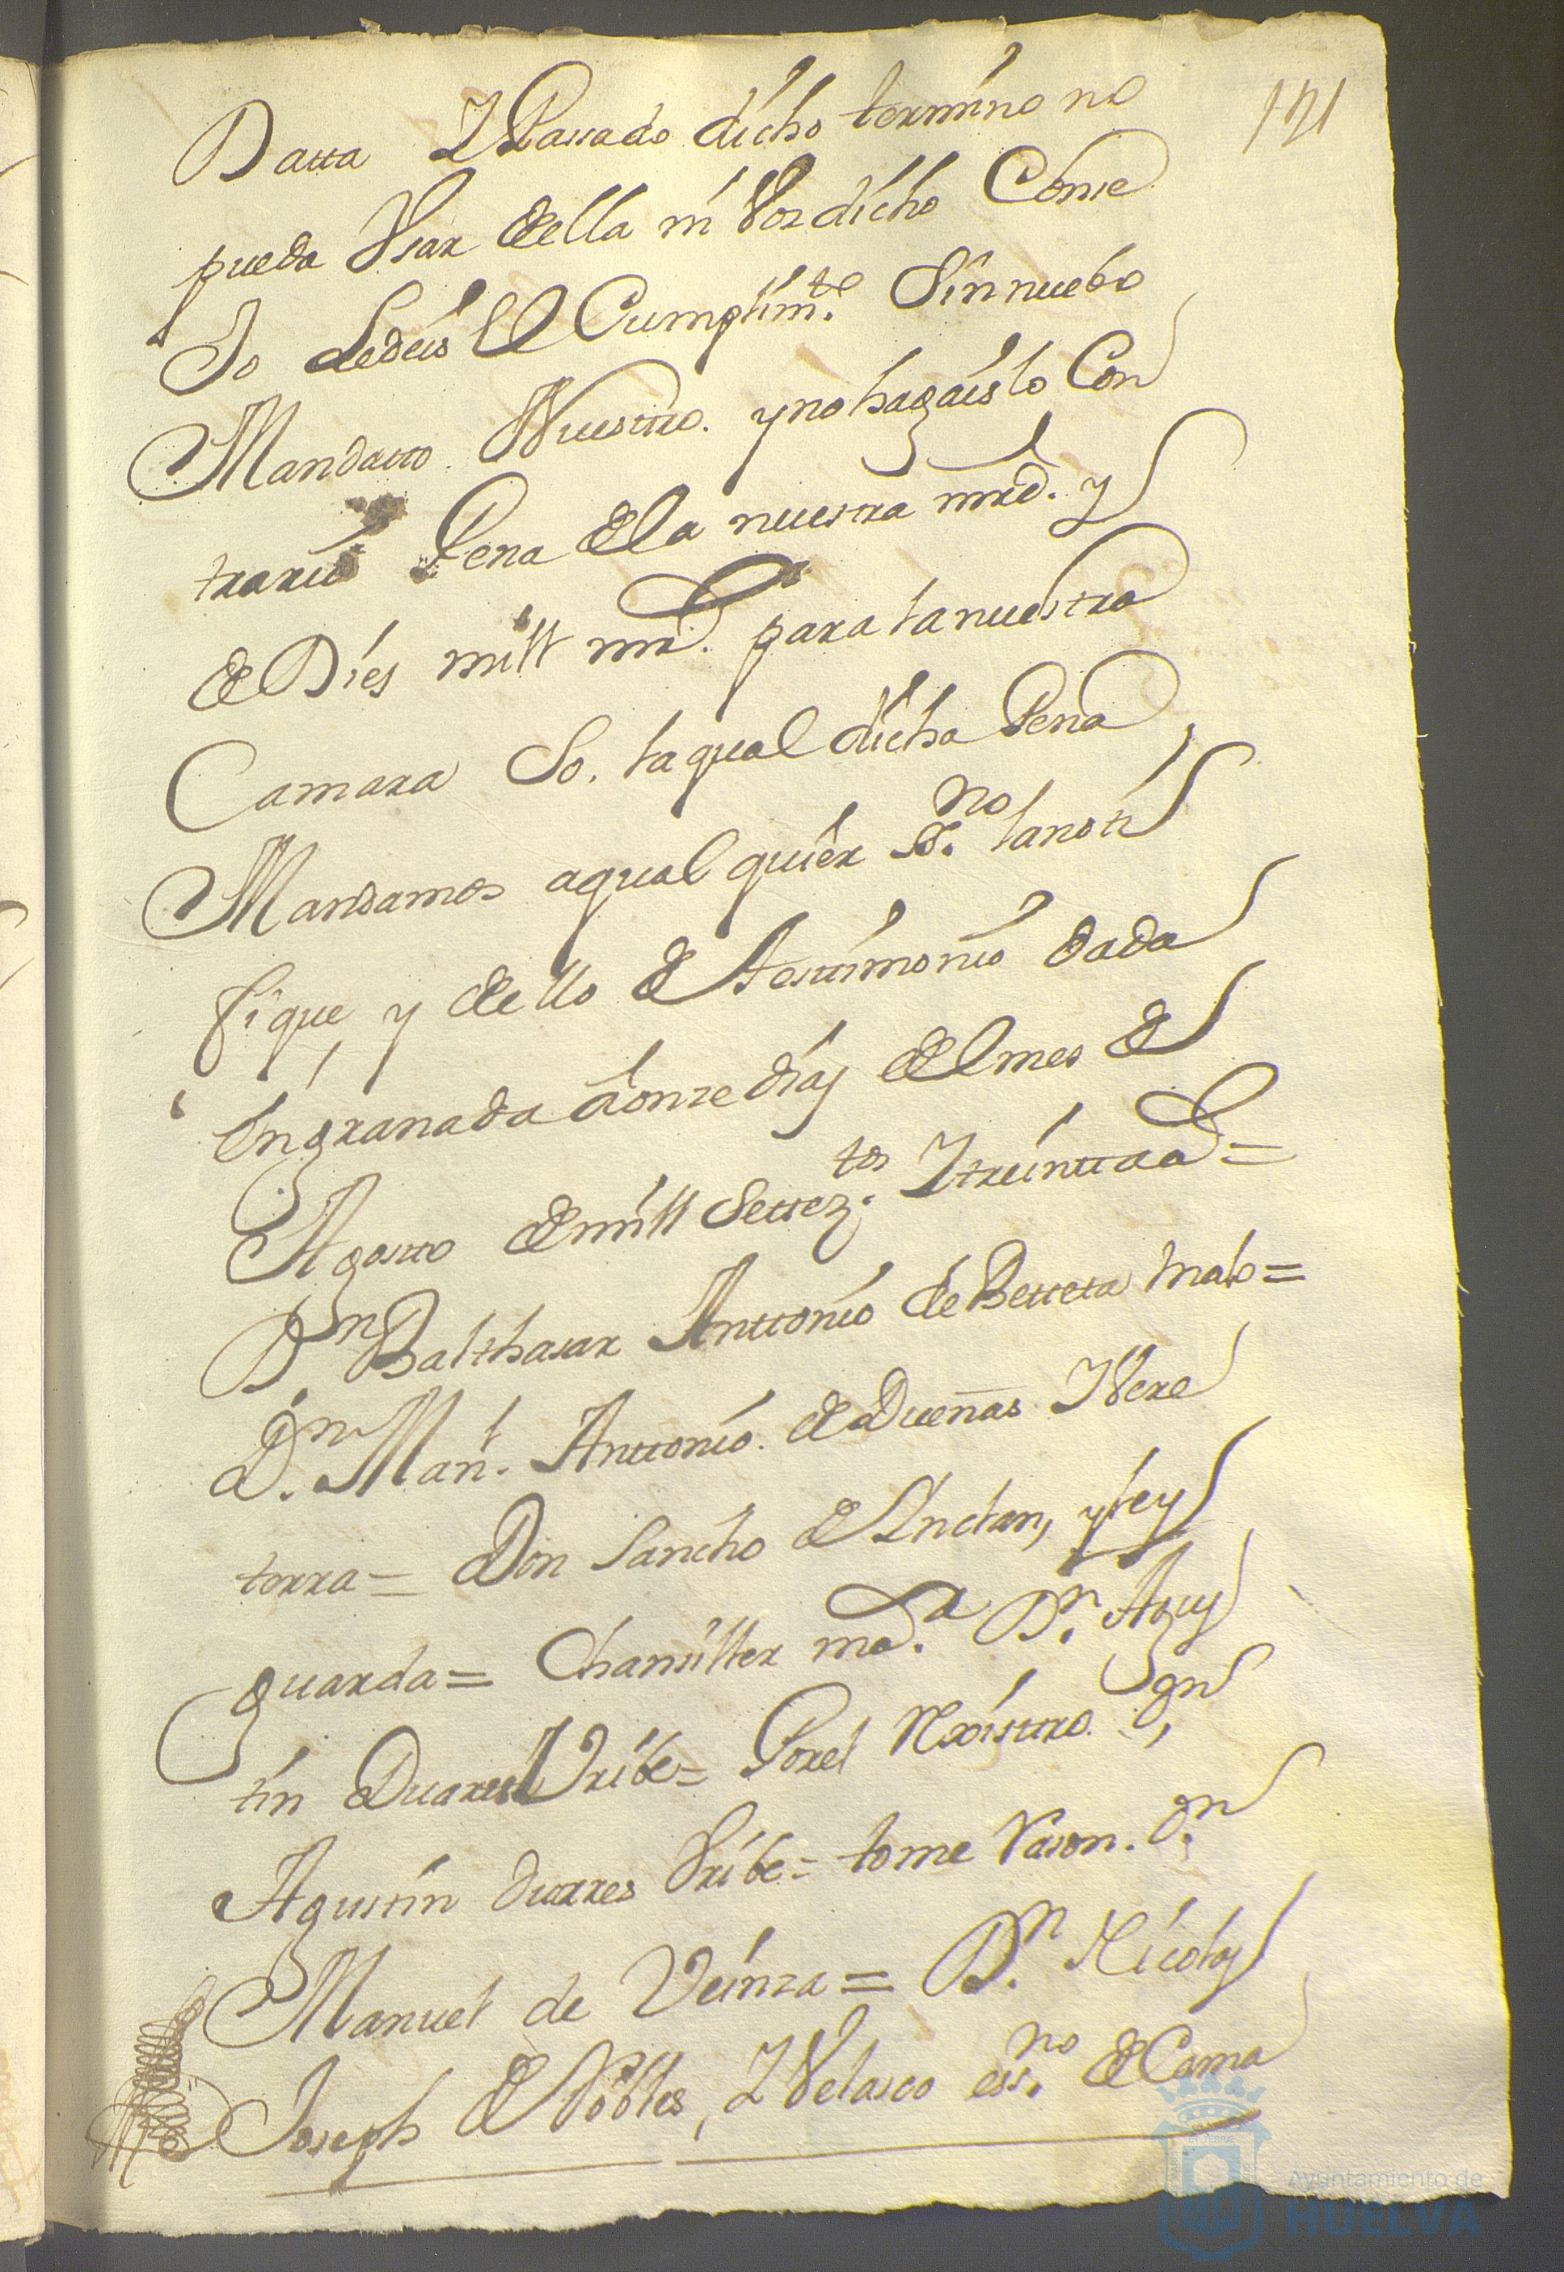 121
Datta Y Passado dicho termino no
pueda Usar della ni Vos dicho Conse
Jo Ledeis El Cumplim.to Sin nuebo
Mandatto Nuestro. y no hagais lo Con
trario Pena de la nuestra mrd. y
de Dies mill mrs. para la nuestra
Camara So. la qual dicha Pena
Mandamos a qual quier ss.no la noti
fique y dello de testimonio dada
En granada a onze dias del mes de
Agosto de mill Settez.tos Y treintta =
Dn Balthasar Anttonio de Betteta Malo =
Dn. Man.l Anttonio. de Dueñas Y Vere
terra = Don Sancho de Inclan, y ley
guarda = Chansiller ma.r Dn. Aguz
tin Duares Uribe = Por el Rexisttro Dn
Agustin duarres Uribe = tome Rason. Dn
Manuel de Veinza = Dn. Nicolas
Joseph de Robles, Y Velasco ess.no de Cama
Ayuntamiento de
HUELVA